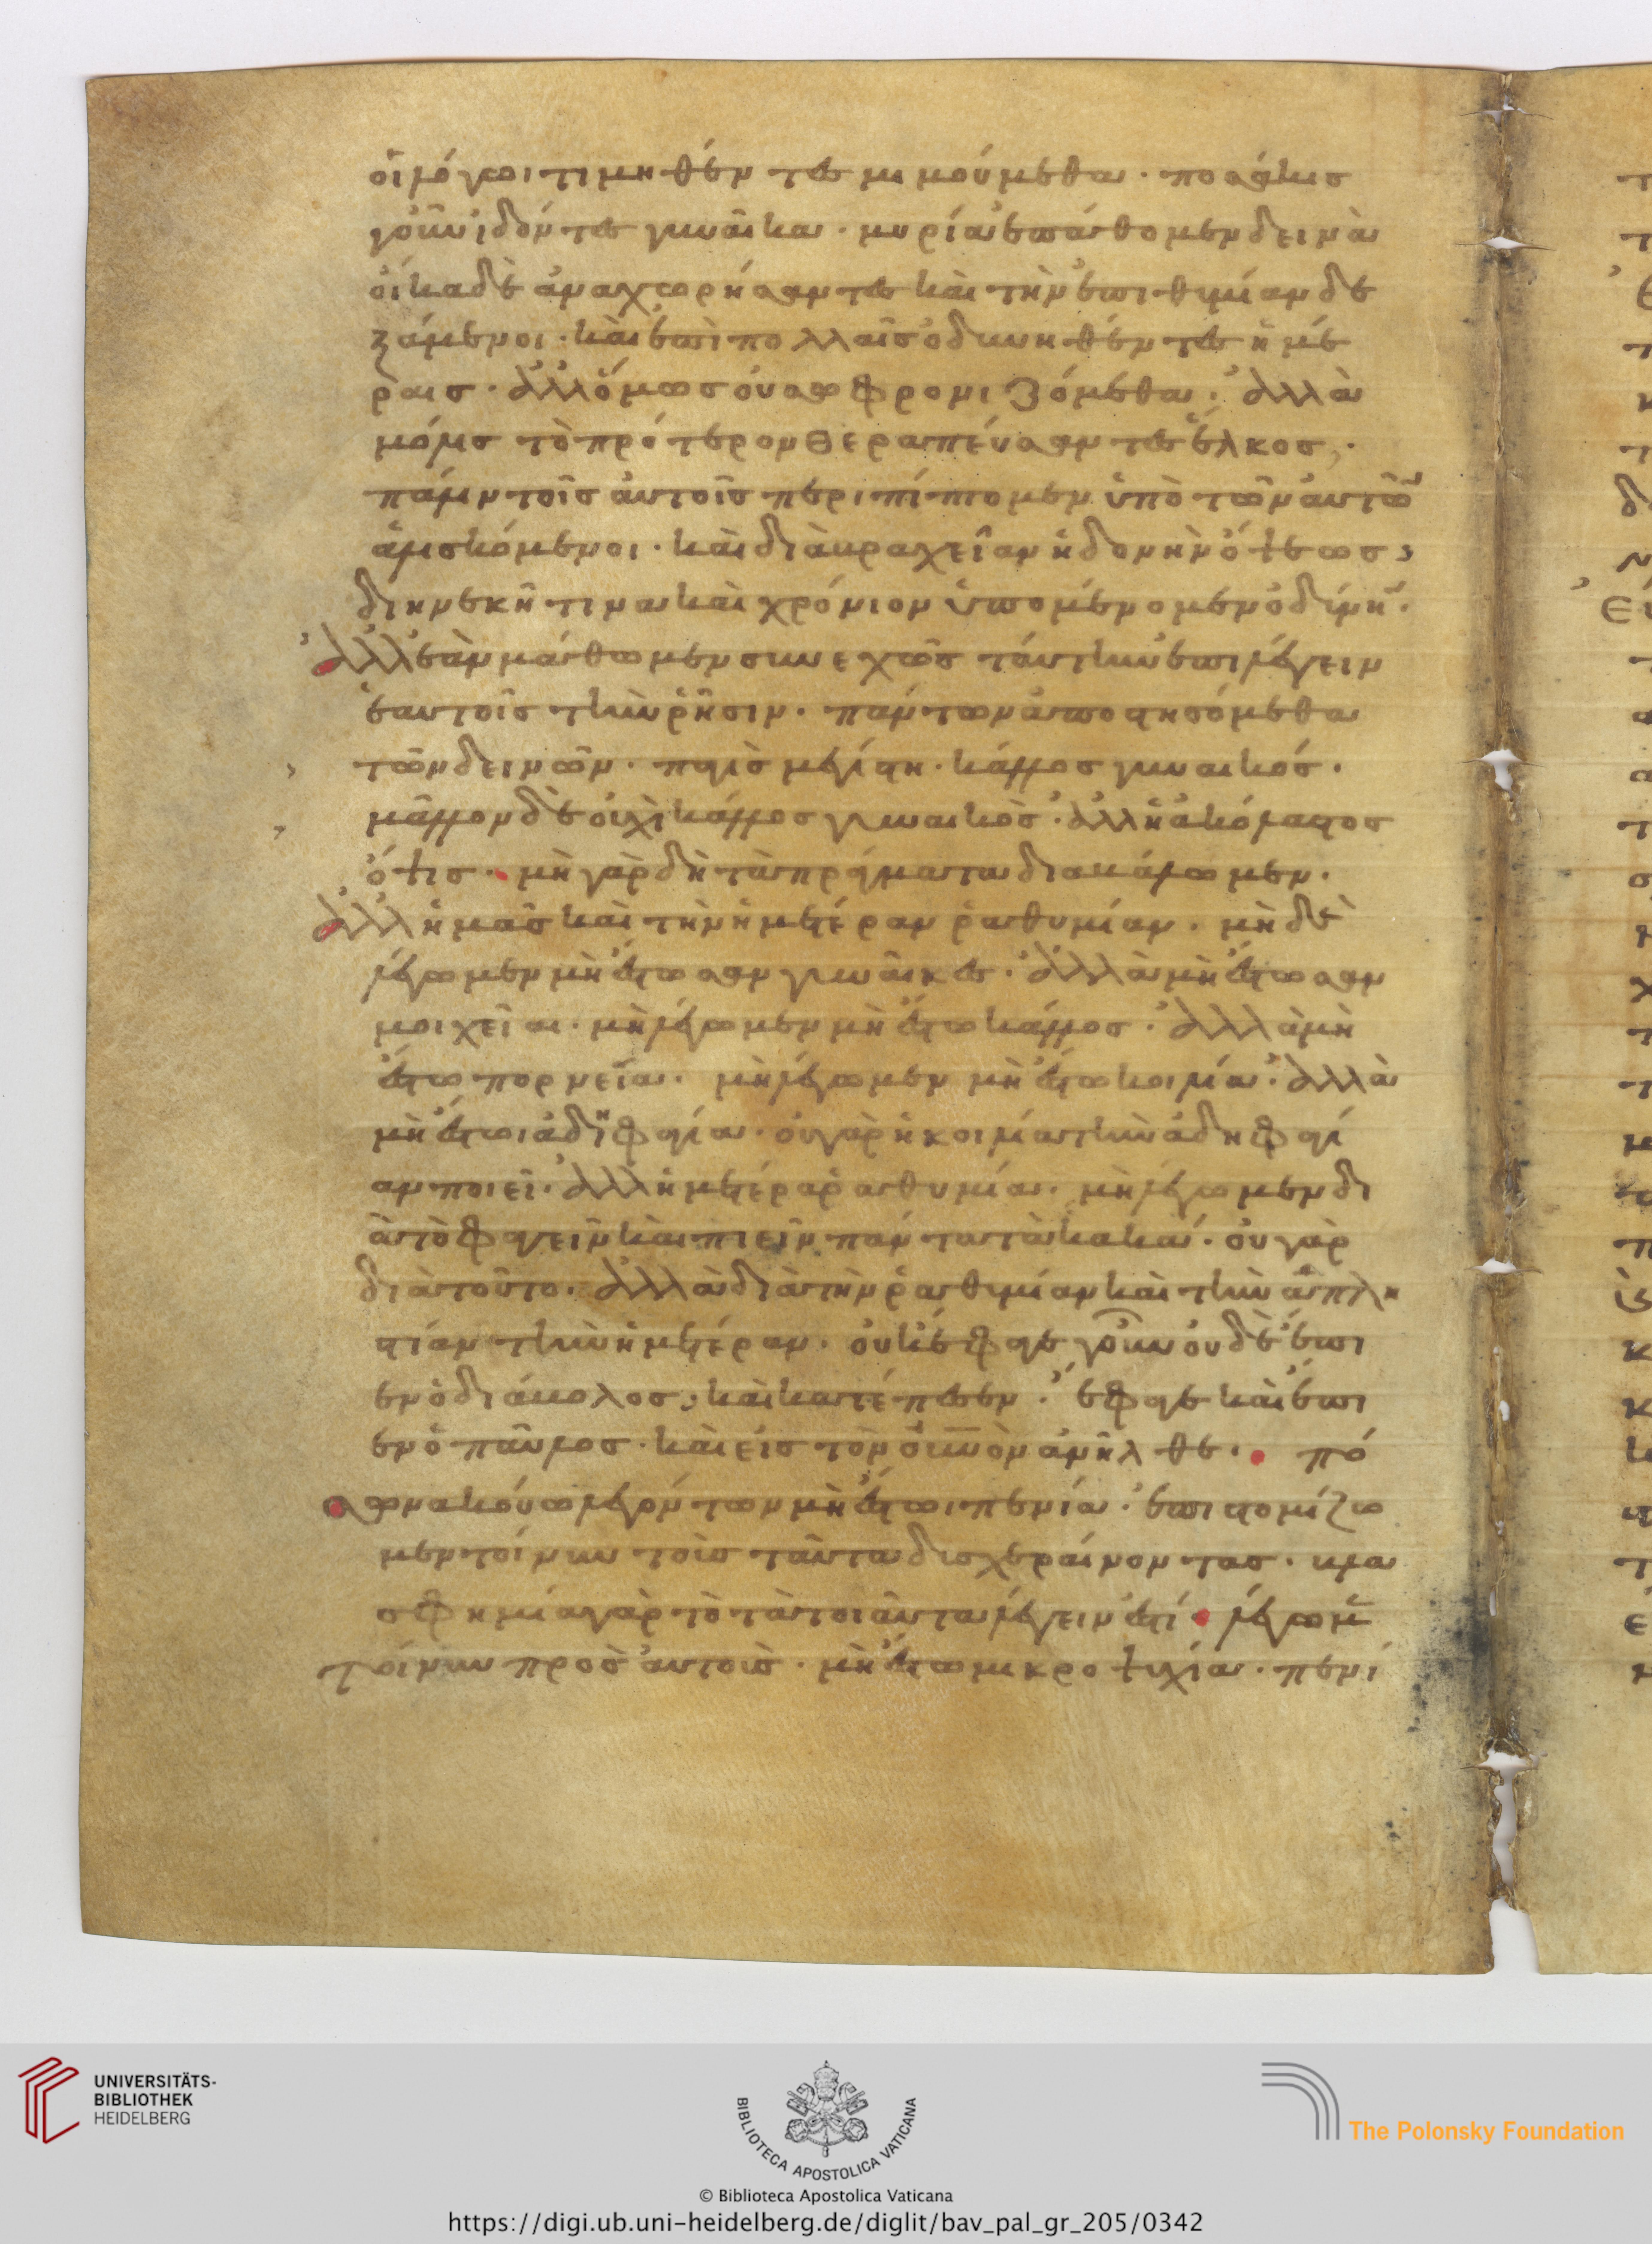 οἱ λόγωι τιμηθέντες μιμούμεθα. πολλάκις
γοῦν ἰδόντες γυναῖκα. μυρία ἐπάθομεν δεινὰ
οἴκαδε ἀναχωρήσαντες καὶ τὴν ἐπιθυμίαν δε
ξάμενοι. καὶ ἐπὶ πολλαῖς ὀδυνηθέντες ἡμέ
ραις. ἀλλ' ὅμως οὐ σωφρονιζόμεθα. ἀλλὰ
μόλις τὸ πρότερον θεραπεύσαντες ἕλκος,.
πάλιν τοῖς αὐτοῖς περιπίπτομεν ὑπὸ τῶν αὐτῶν
ἁλισκόμενοι. καὶ διὰ βραχεῖαν ἡδονὴν ὄψεως,
διηνεκῆ τινα καὶ χρόνιον ὑπομένομεν ὀδύνην.
Ἀλλ' ἐὰν μάθωμεν συνεχῶς ταύτην ἐπιλέγειν
ἑαυτοῖς τὴν ῥῆσιν. πάντων ἀποστησόμεθα
τῶν δεινῶν. πλὴν μεγίστη. κάλλος γυναικός.
μᾶλλον δὲ οὐχὶ κάλλος γυναικὸς. ἀλλ' ἡ ἀκόλαστος
ὄψις. μὴ γὰρ δὴ τὰ πράγματα διαβάλωμεν.
Ἀλλ' ἡμᾶς καὶ τὴν ἡμετέραν ῥαθυμίαν. μὴ δὲ
λέγωμεν μὴ ἔστωσαν γυναῖκες. ἀλλὰ μὴ ἔστωσαν
μοιχεῖαι. μὴ λέγωμεν μὴ ἔστω κάλλος. ἀλλὰ μὴ
ἔστω πορνεία. μὴ λέγωμεν μὴ ἔστω κοιλία. ἀλλὰ
μὴ ἔστωι ἀδηφαγία. οὐ γὰρ ἡ κοιλία τὴν ἀδηφαγί
αν ποιεῖ. ἀλλ' ἡμετέρα ῥαθυμία. μὴ λέγωμεν δι
ὰ τὸ φαγεῖν καὶ πιεῖν πάντα τὰ κακά. οὐ γὰρ
διὰ τοῦτο. ἀλλὰ διὰ τὴν ῥαθυμίαν καὶ τὴν ἀπλη
στίαν τὴν ἡμετέραν. οὐκ ἔφαγε γοῦν οὐδὲ ἔπι
εν ὁ διάβολος, καὶ κατέπεσεν. ἔφαγε καὶ ἔπι
εν ὁ παῦλος. καὶ εἰς τὸν οὐνὸν ἀνῆλθε. πό
σων ἀκούω λεγόντων μὴ ἔστωι πενία. ἐπιστομίζω
μεν τοίνυν τοὺς ταῦτα δυσχεραίνοντας. βλα
σφημία γὰρ τὸ τὰ τοιαῦτα λέγειν ἐστί. λέγωμεν
τοίνυν πρὸς αὐτοὺς. μὴ ἔστω μικροψυχία. πενί
UNIVERSITÄTS-
BIBLIOTHEK
HEIDELBERG
BIBLIOTECA APOSTOLICA VATICANA
The Polonsky Foundation
© Biblioteca Apostolica Vaticana
https://digi.ub.uni-heidelberg.de/diglit/bav_pal_gr_205/0342